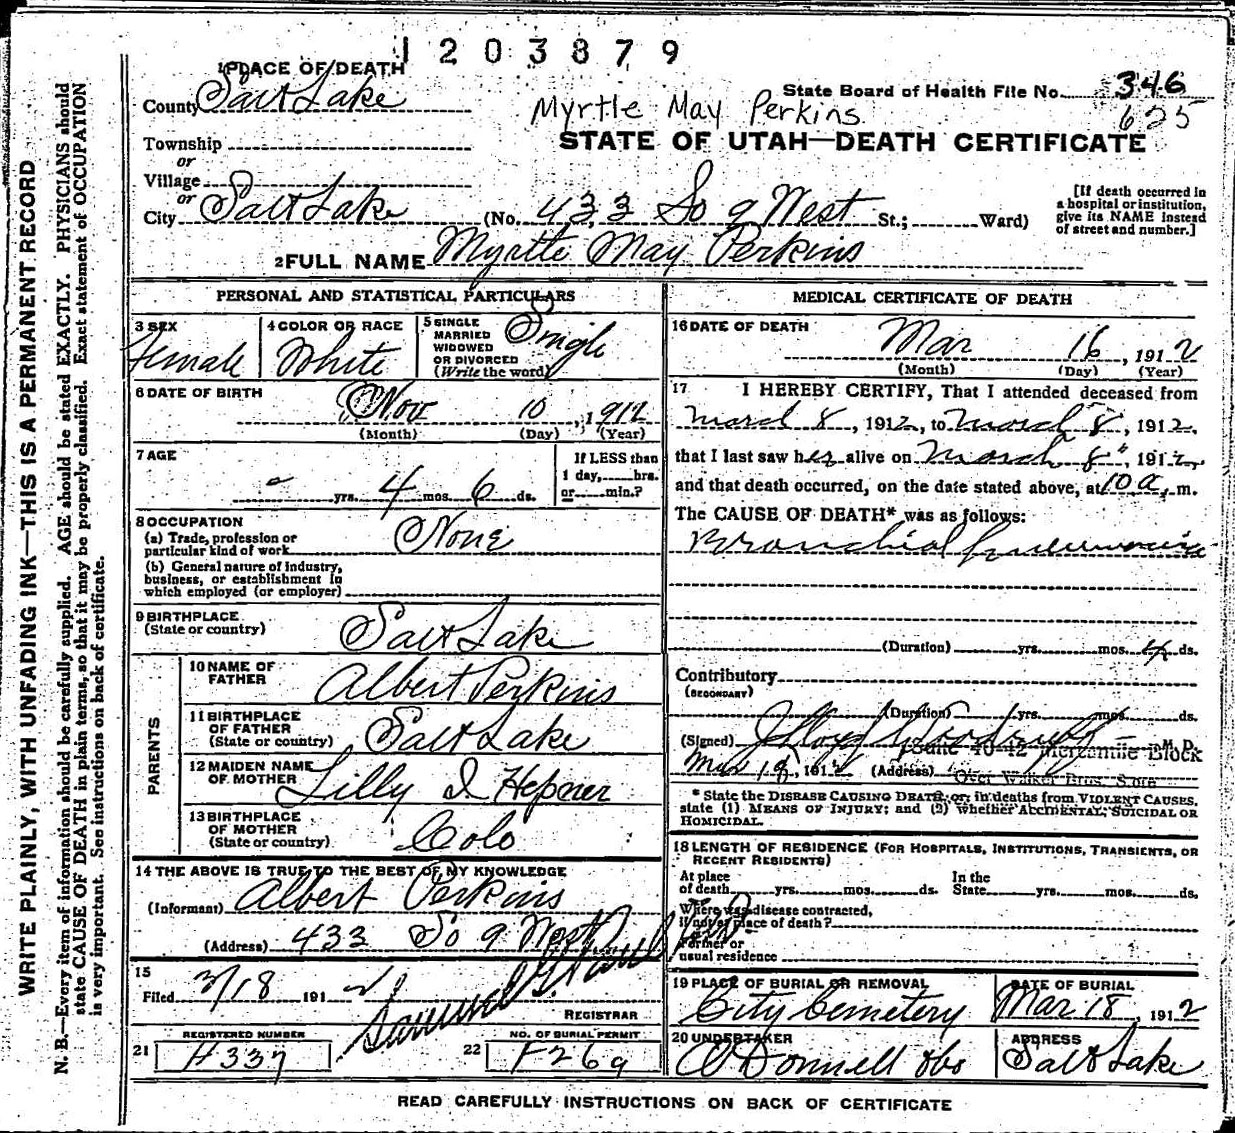 1203879
1 PLACE OF DEATH
County Salt Lake
State Board of Health File No. 346
Myrtle May Perkins 625
STATE OF UTAH—DEATH CERTIFICATE
Township
or
Village
or
City Salt Lake (No. 433 So 9 West St.; Ward)
[If death occurred in a hospital or institution, give its NAME instead of street and number.]
2 FULL NAME Myrtle May Perkins
PERSONAL AND STATISTICAL PARTICULARS
3 SEX Female
4 COLOR OR RACE White
5 SINGLE MARRIED WIDOWED OR DIVORCED (Write the word) Single
6 DATE OF BIRTH Nov 10, 1912
(Month) (Day) (Year)
7 AGE
- yrs. 4 mos. 6 ds.
If LESS than 1 day, hrs. or min.?
8 OCCUPATION None
(a) Trade, profession or particular kind of work
(b) General nature of industry, business, or establishment in which employed (or employer)
9 BIRTHPLACE (State or country) Salt Lake
PARENTS
10 NAME OF FATHER Albert Perkins
11 BIRTHPLACE OF FATHER (State or country) Salt Lake
12 MAIDEN NAME OF MOTHER Lilly I Hepner
13 BIRTHPLACE OF MOTHER (State or country) Colo
14 THE ABOVE IS TRUE TO THE BEST OF MY KNOWLEDGE
(Informant) Albert Perkins
(Address) 433 So 9 West
15
Filed 3/18 1912
Samuel G. Paul
REGISTRAR
REGISTERED NUMBER
21 H337
NO. OF BURIAL PERMIT
22 F269
MEDICAL CERTIFICATE OF DEATH
16 DATE OF DEATH
Mar 16, 1912
(Month) (Day) (Year)
17 I HEREBY CERTIFY, That I attended deceased from
March 8, 1912, to March 8, 1912,
that I last saw her alive on March 8", 1912,
and that death occurred, on the date stated above, at 10 a. m.
The CAUSE OF DEATH* was as follows:
Bronchial Pneumonia
(Duration) yrs. mos. 4 ds.
Contributory
(SECONDARY)
(Duration) yrs. mos. ds.
(Signed) Woodruff M. D.
Mar 18, 1912 (Address) Suite 40-42 Mercantile Block
Over Walker Bros. Store
* State the DISEASE CAUSING DEATH, or, in deaths from VIOLENT CAUSES, state (1) MEANS OF INJURY; and (2) whether ACCIDENTAL, SUICIDAL OR HOMICIDAL.
18 LENGTH OF RESIDENCE (FOR HOSPITALS, INSTITUTIONS, TRANSIENTS, OR RECENT RESIDENTS)
At place of death yrs. mos. ds. In the State yrs. mos. ds.
Where was disease contracted, if not at place of death?
Former or usual residence
19 PLACE OF BURIAL OR REMOVAL City Cemetery
DATE OF BURIAL Mar 18, 1912
20 UNDERTAKER O'Donnell
ADDRESS Salt Lake
READ CAREFULLY INSTRUCTIONS ON BACK OF CERTIFICATE
WRITE PLAINLY, WITH UNFADING INK—THIS IS A PERMANENT RECORD
N. B.—Every item of information should be carefully supplied. AGE should be stated EXACTLY. PHYSICIANS should
state CAUSE OF DEATH in plain terms, so that it may be properly classified. Exact statement of OCCUPATION
is very important. See instructions on back of certificate.